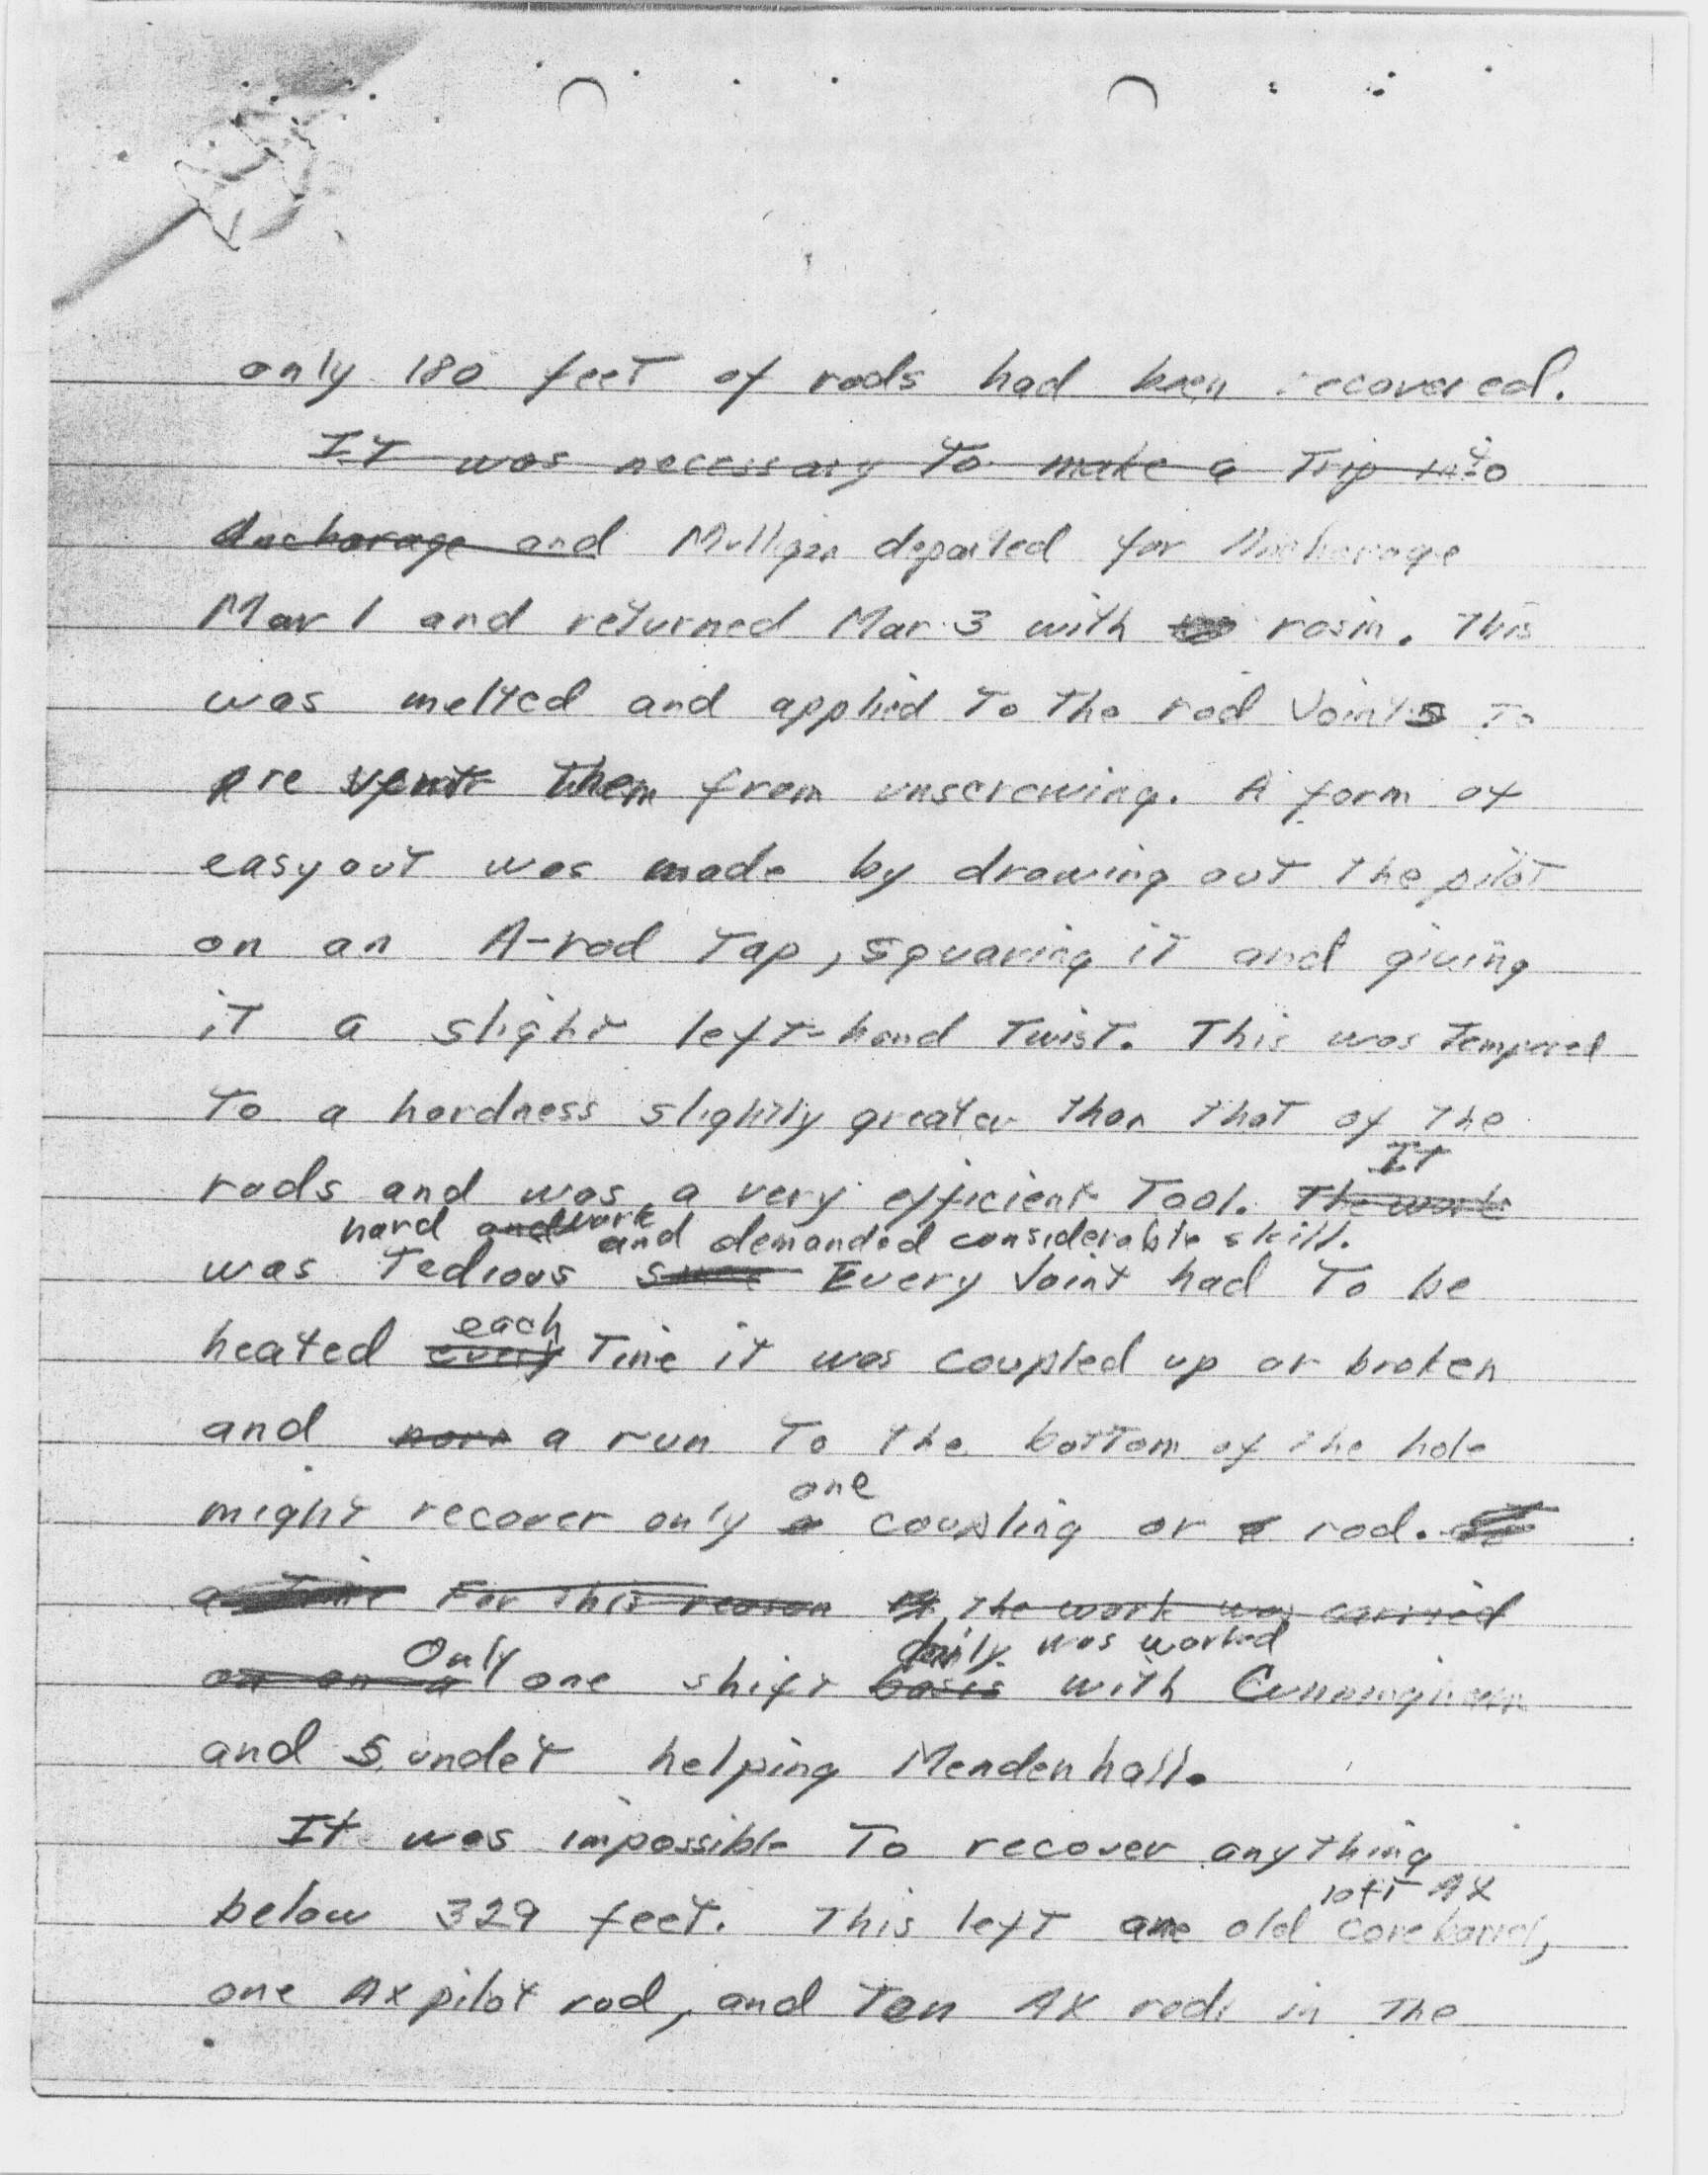 only 180 feet of rods had been recovered.
It was necessary to make a Trip into
Anchorage and Mulligan departed for Anchorage
Mar 1 and returned Mar 3 with rosin. This
was melted and applied To The rod Joints To
pre vent them from unscrewing. A form of
easyout was made by drawing out the pilot
on an A-rod Tap, squaring it and giving
it a slight left-hand Twist. This was Tempered
To a hardness slightly greater than that of the
It
rods and was a very efficient Tool. The work
hard and work and demanded considerable skill.
was Tedious Every Joint had To be
each
heated every Time it was coupled up or broken
and a run To the bottom of the hole
one
might recover only a coupling or a rod.
a time For this reason the work was carried
Only daily was worked
on on a one shift basis with Cunningham
and Sundet helping Mendenhall.
It was impossible To recover anything
10 ft AX
below 329 feet. This left one old core barrel,
one AX pilot rod, and Ten AX rods in the